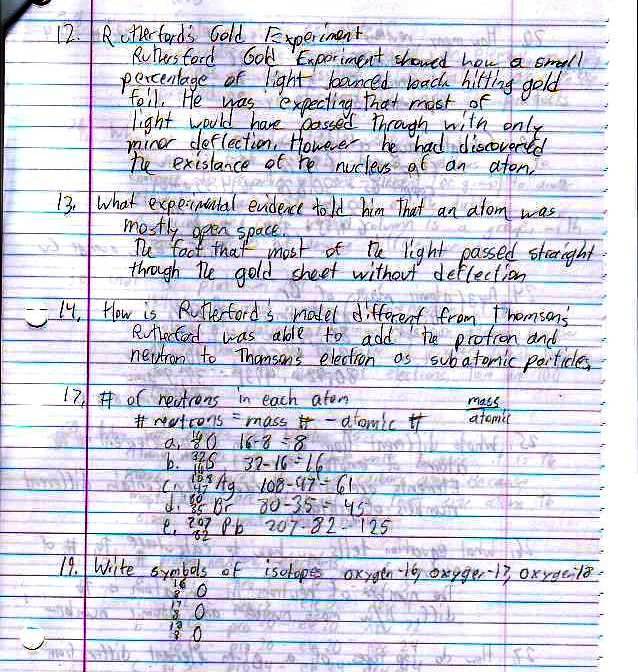 12. Rutherford's Gold Experiment
Ruthersford Gold Experiment showed how a small
percentage of light bounced back hitting gold
foil. He was expecting that most of
light would have passed through with only
minor deflection. However he had discovered
the existance of the nucleus of an atom.
13. What experimental evidence told him that an atom was
mostly open space.
The fact that most of the light passed straight
through the gold sheet without deflection
14. How is Rutherford's model different from Thomson's
Rutherford was able to add the protron and
neutron to Thomson's electron as subatomic particles.
17. # of neutrons in each atom mass
# neutrons = mass # - atomic # atomic
a. 16 8 O 16-8=8
b. 32 16 S 32-16=16
c. 108 47 Ag 108-47=61
d. 80 35 Br 80-35=45
e. 207 82 Pb 207-82=125
19. Write symbols of isotopes oxygen-16, oxygen-17, oxygen-18
16 8 O
17 8 O
18 8 O